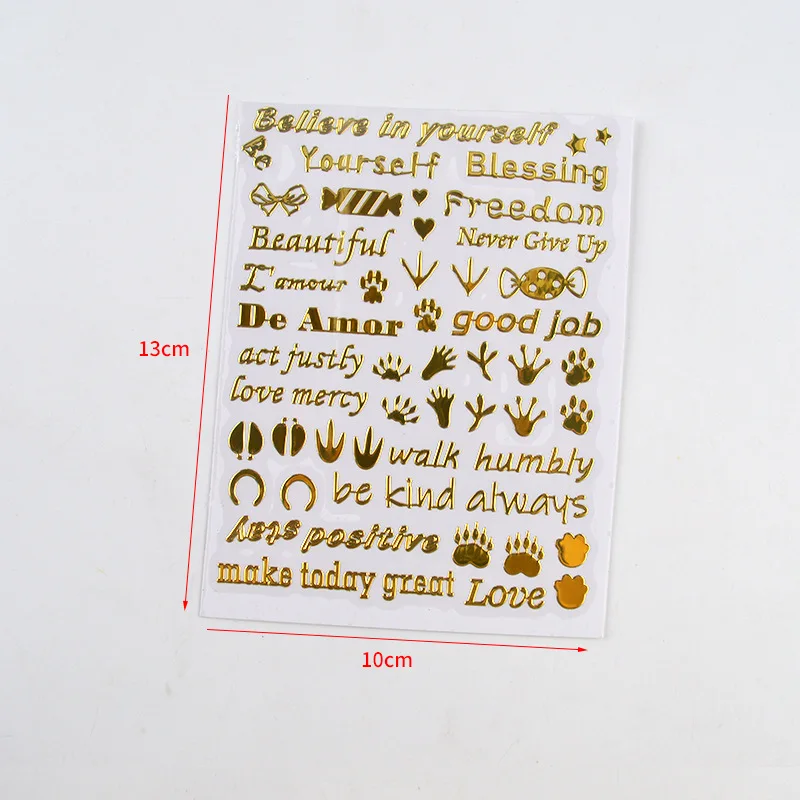 Believe in yourself
Be Yourself Blessing
Freedom
Beautiful Never Give Up
L'amour
De Amor good job
act justly
love mercy
walk humbly
be kind always
stay positive
make today great Love
13cm
10cm